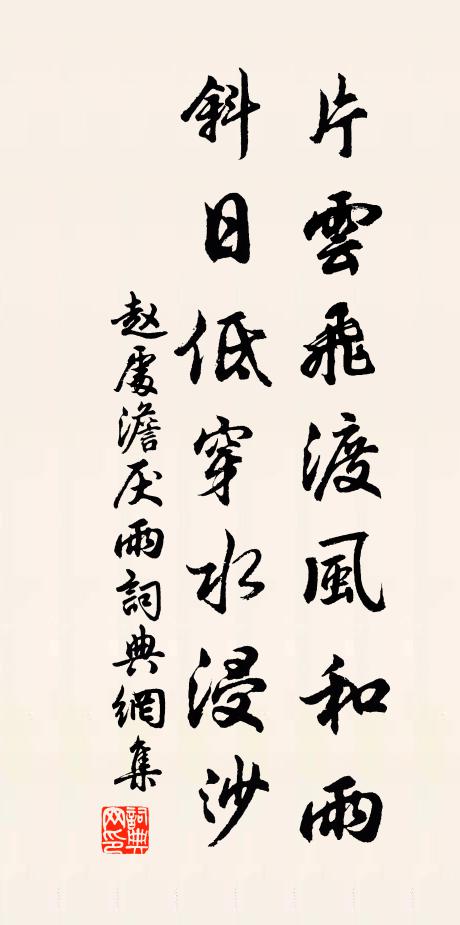 片雲飛渡風和雨
斜日低穿水浸沙
赵處澹厌雨詞典網集
詞典網印